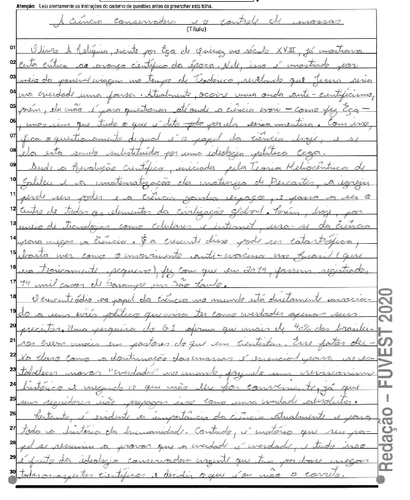 Atenção: Leia atentamente as instruções do caderno de questões antes de preencher esta folha.
A ciência conservadora e o controle de massas
(Título)
01 O livro A Relíquia, escrito por Eça de Queiroz no século XVIII, já mostrava
02 certa crítica ao avanço científico da época. Nele, isso é mostrado por
03 meio da viagem no tempo de Teodorico, revelando que Jesus seria
04 na verdade uma farsa. Atualmente, ocorre uma onda anti-científica,
05 porém, ela não é para questionar até onde a ciência vai - como fez Eça -
06 mas sim que tudo o que é dito por ela seria mentira. Com isso,
07 fica o questionamento de qual é o papel da ciência hoje, e se
08 ela está sendo substituída por uma ideologia política cega.
09 Desde a Revolução Científica, iniciada pela Teoria Heliocêntrica de
10 Galileu e a matematização da natureza de Descartes, a igreja
11 perde seu poder e a ciência ganha espaço, e passa a ser o
12 centro de todos os elementos da civilização global. Porém, hoje, por
13 meio de tecnologias como celulares e internet, usa-se da ciência
14 para negar a ciência. E a crescente disso pode ser catastrófica,
15 basta ver como o movimento anti-vacina no Brasil (que
16 era pequeno) fez com que em 2019 fossem registrados
17 14 mil casos de Sarampo em São Paulo.
18 O papel da ciência no mundo está diretamente associado
19 a uma visão política que visa ter como verdades apenas seus
20 preceitos. Uma pesquisa do G1 afirma que mais de 40% dos brasileiros
21 creem mais em pastores do que em cientistas. Esse fato deixa
22 claro como a dominação das massas é essencial para se estabelecer
23 novas "verdades" no mundo, fazendo um revisionismo
24 histórico e negando o que não lhe for conveniente, já que
25 seus seguidores irão propagar isso como uma verdade absoluta.
26 Portanto, é evidente a importância da ciência atualmente e para
27 toda a história da humanidade. Contudo, é notório que seu papel
28 se resumiu a provar que a verdade é verdade, e tudo isso
29 é fruto da ideologia conservadora vigente que tem por base negar
30 aspectos científicos e decidir o que é ou não o correto.
Redação – FUVEST 2020